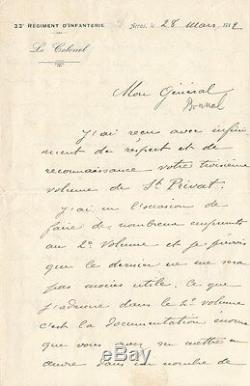 33e RÉGIMENT D'INFANTERIE
Arras, le 28 Mars 191
Le Colonel
Mon Général
Bonnal
J'ai reçu avec infini
ment de respect et de
reconnaissance votre troisième
volume de St Privat.
J'ai eu l'occasion de
faire des nombreux emprunts
au 2e Volume et je prévois
que le dernier ne me sera
pas moins utile. Ce que
j'admire dans le 2e volume
c'est la documentation énorme
que vous avez su mettre en
œuvre dans un nombre de